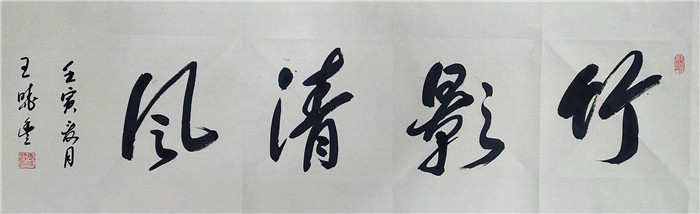 竹影清风
壬寅夏月
王晓